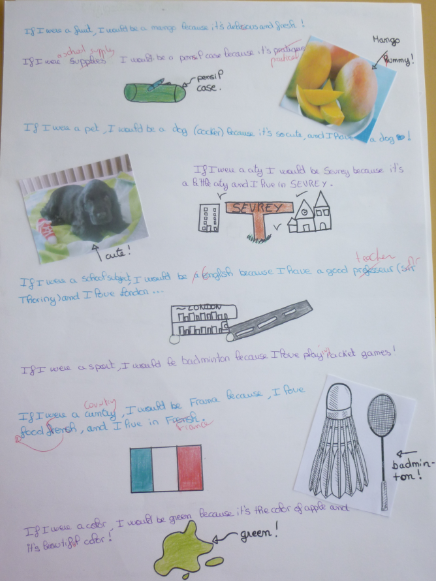 If I was a fruit, I would be a mango because it's delicious and fresh!
Mango
Yummy!
school supply
If I were supplies I would be a pensil case because it's
pensil
case.
If I were a pet, I would be a dog (cocker) because it's so cute, and I love a dog!
cute!
If I were a city I would be Sevrey because it's
a little city and I live in SEVREY.
SEVREY
teacher
If I were a school subject, I would be english because I have a good professeur
Thoriny) and I love London ...
LONDON
If I were a sport, I would be badminton because I love play racket games!
country
If I were a cuntry, I would be France because, I love
food french, and I live in French.
France
badmin-
ton!
If I were a color, I would be green because it's the color of apple and
It's beautiful color!
green!